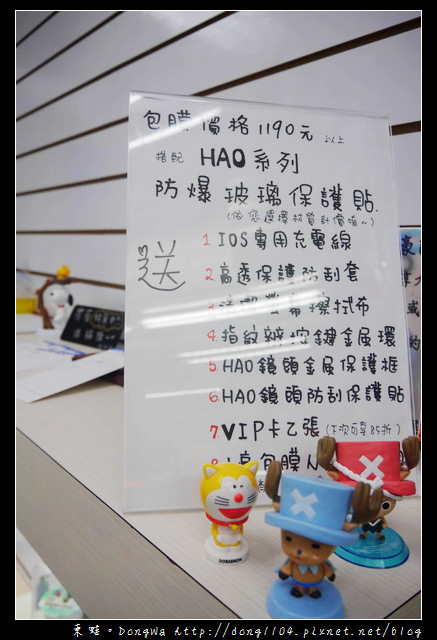 包膜價格1190元 以上
搭配 HAO系列
防爆玻璃保護貼.
(依您選擇材質計價唷~)
送
1. IOS專用充電線
2. 高透保護防刮套
擦拭布
4. 指紋辨按鍵金屬環
5. HAO鏡頭金屬保護框
6. HAO鏡頭防刮保護貼
7. VIP卡乙張(下次可享85折)
包膜
DORAEMON
東蛙。DongWa http://dong1104.pixnet.net/blog